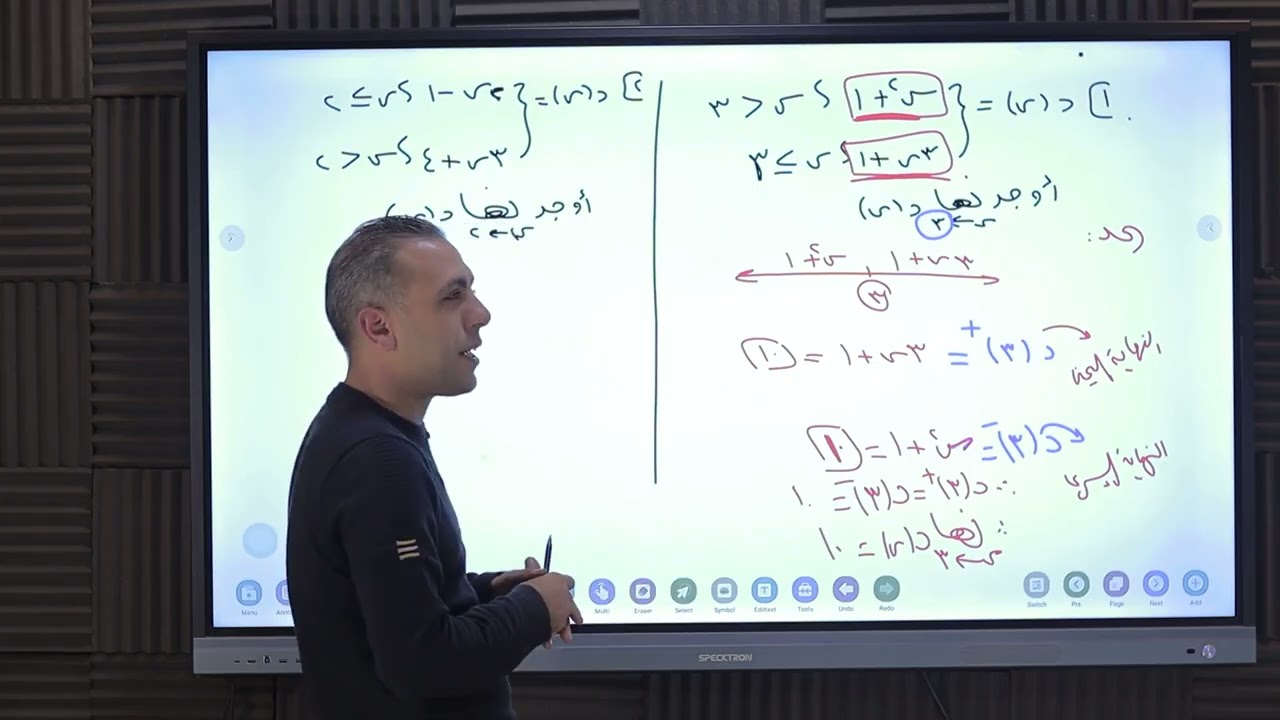 [١] د(س) = { س٢ + ١ ، س < ٣
٣س + ١ ، س ≥ ٣
أوجد نهـا د(س)
س ← ٣
الحل:
س٢ + ١ ٣س + ١
٣
النهاية اليمنى د(٣)+ = ٣س + ١ = ١٠
النهاية اليسرى د(٣)- = س٢ + ١ = ١٠
∵ د(٣)+ = د(٣)- = ١٠
∴ نهـا د(س) = ١٠
س ← ٣
[٢] د(س) = { ٢س - ١ ، س ≥ ٢
٣س + ٤ ، س < ٢
أوجد نهـا د(س)
س ← ٢
Menu
Multi
Eraser
Select
Symbol
Editext
Tools
Undo
Redo
Switch
Pre
Page
Next
Add
SPECKTRON